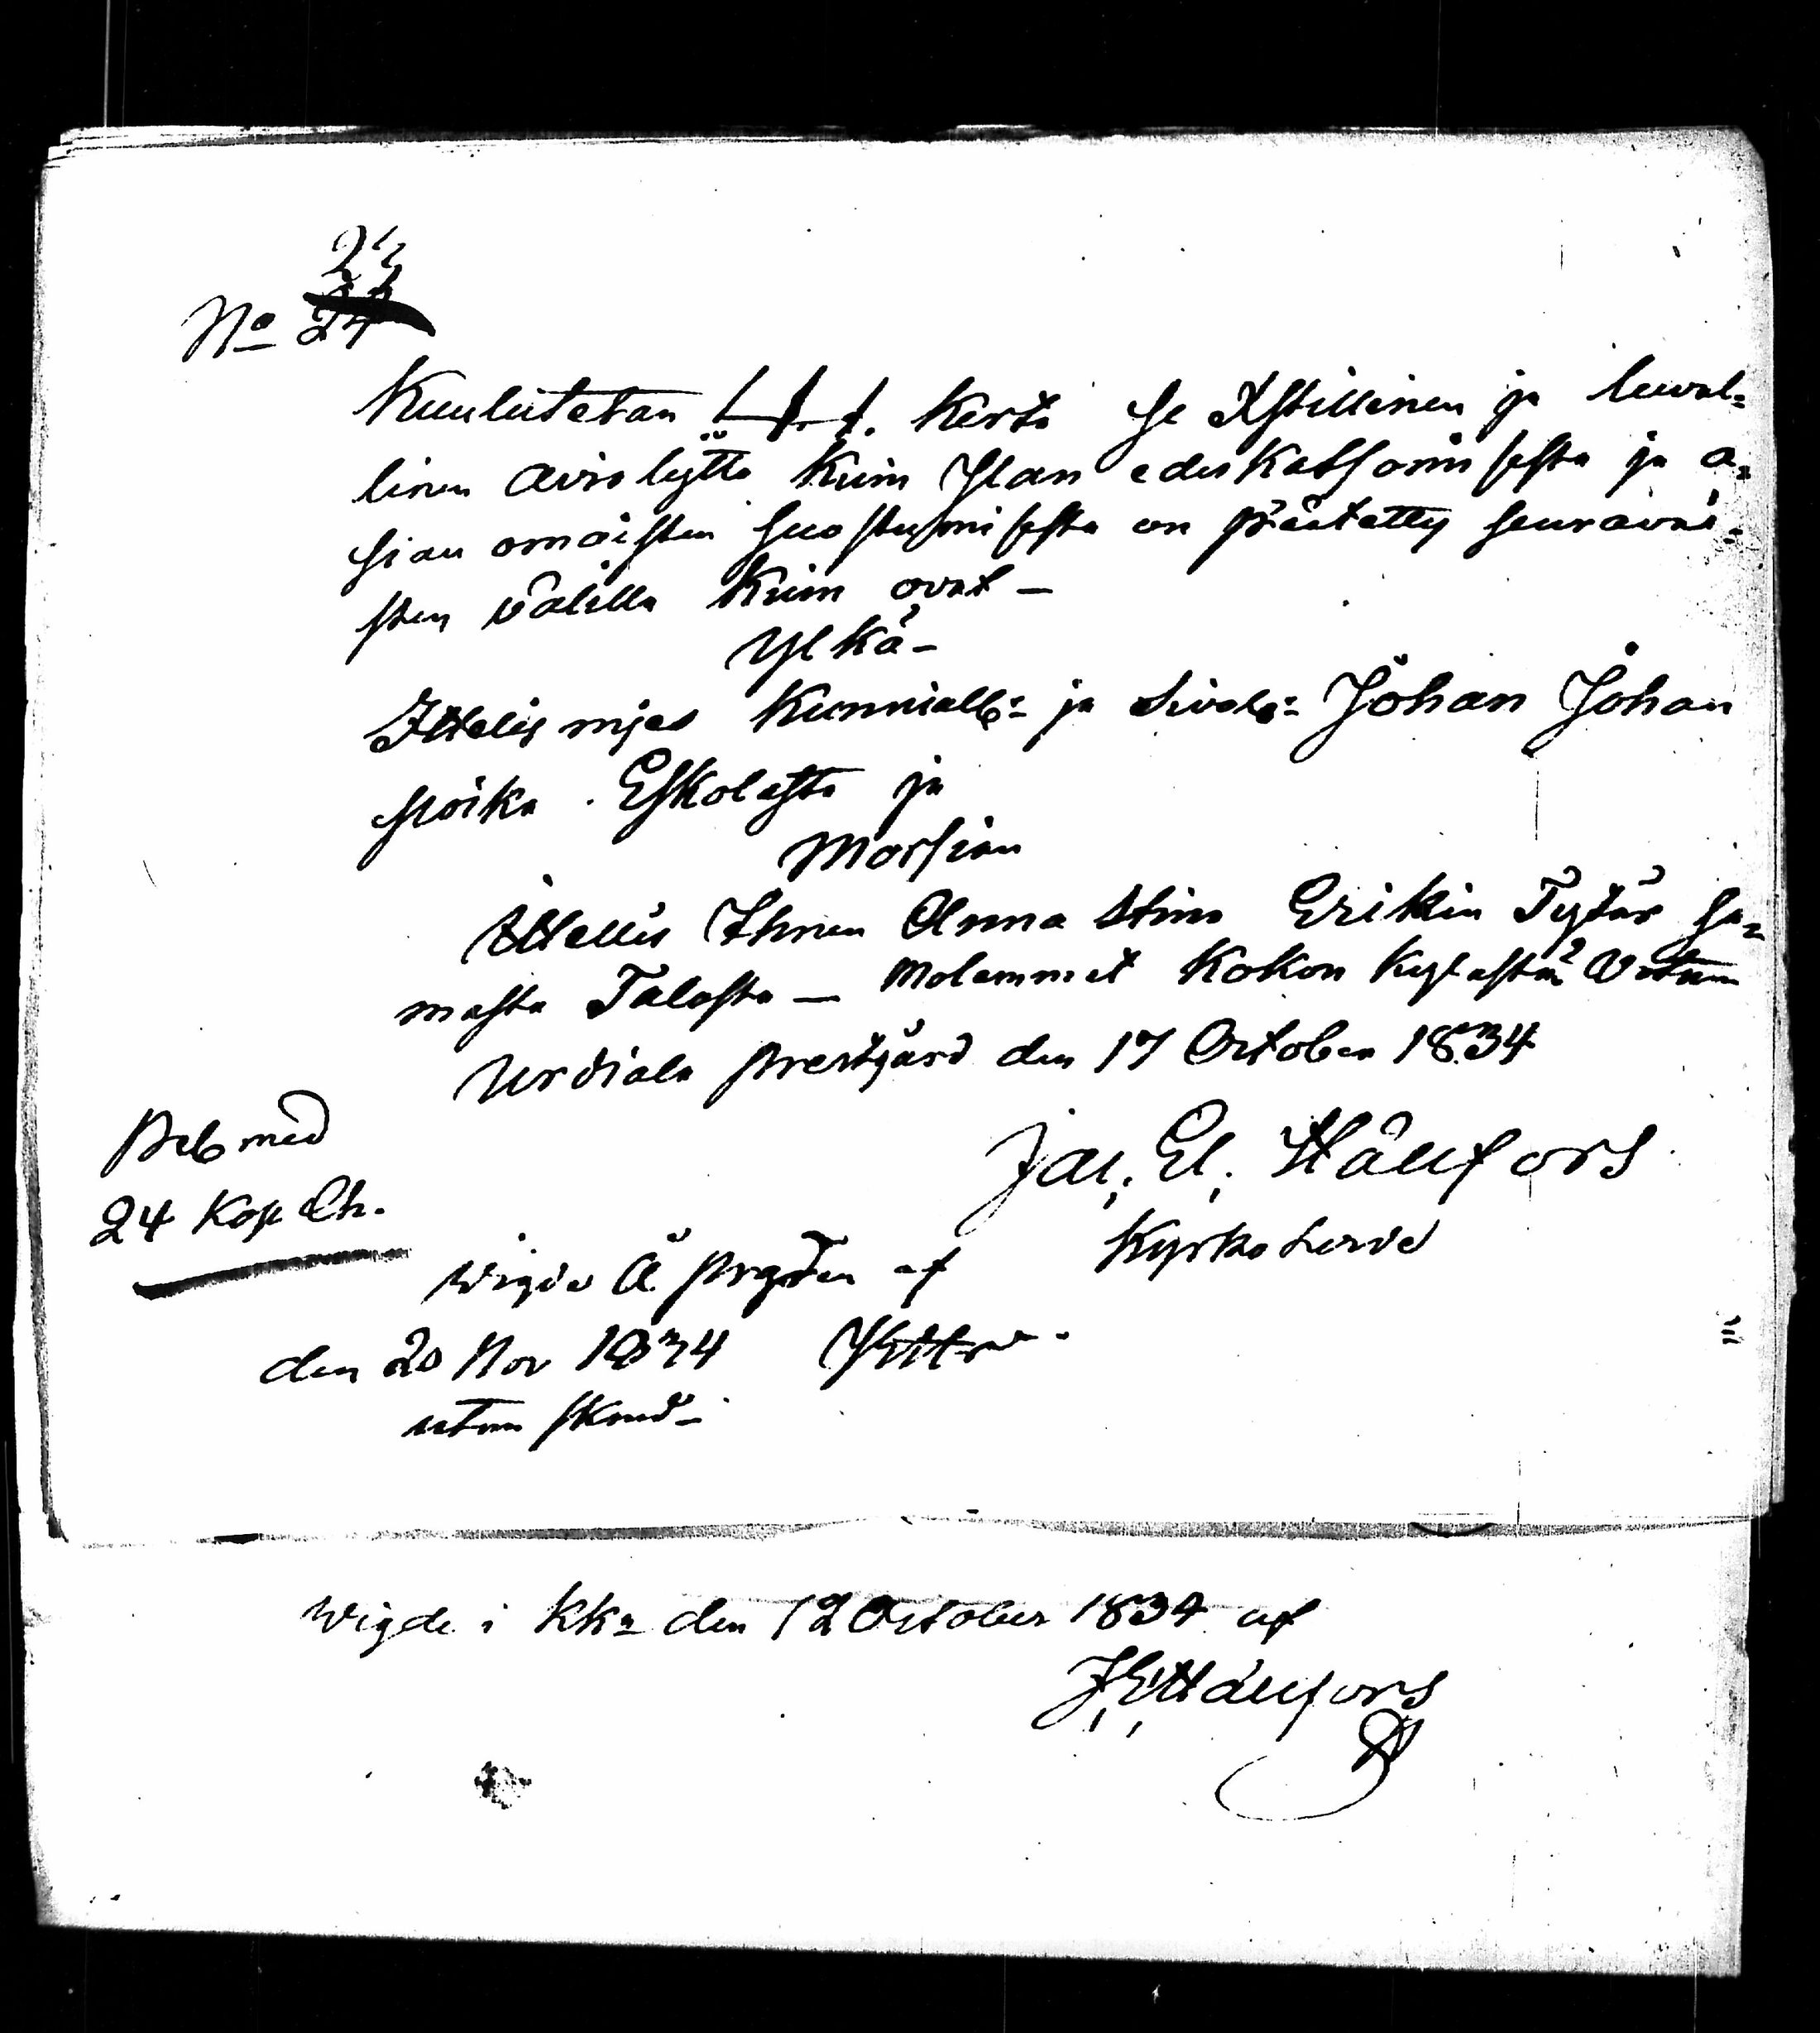 24
No 24
Kuulutetan 1. 1. 1. Kerta se Xstillinen ja luwal=
linen aviokäyttö Kuin Jlan edeskatsomisesta ja a=
sian omaisten suostumisesta on päätetty seurawai=
sten välillä Kuin ovat —
Ylkä –
Ittelis mjes Kunniall:= ja Siv:= Johan Johan
poika Eskolasta ja
Morsian
Ittellis Ihmn Anna Stina Erikin Tytär sa=
masta Talosta — Molemmet Kokon Kylästä
Urdiala prestgård den 17 October 1834
Jac. El. Hällfors
Kyrkoherde
Beb med
24 Kop Ch.
Wigde Å prgden af
den 20 Nov 1834
utan skrud –
Wigde i KKn den 12 October 1834 af
J. E. Hällfors